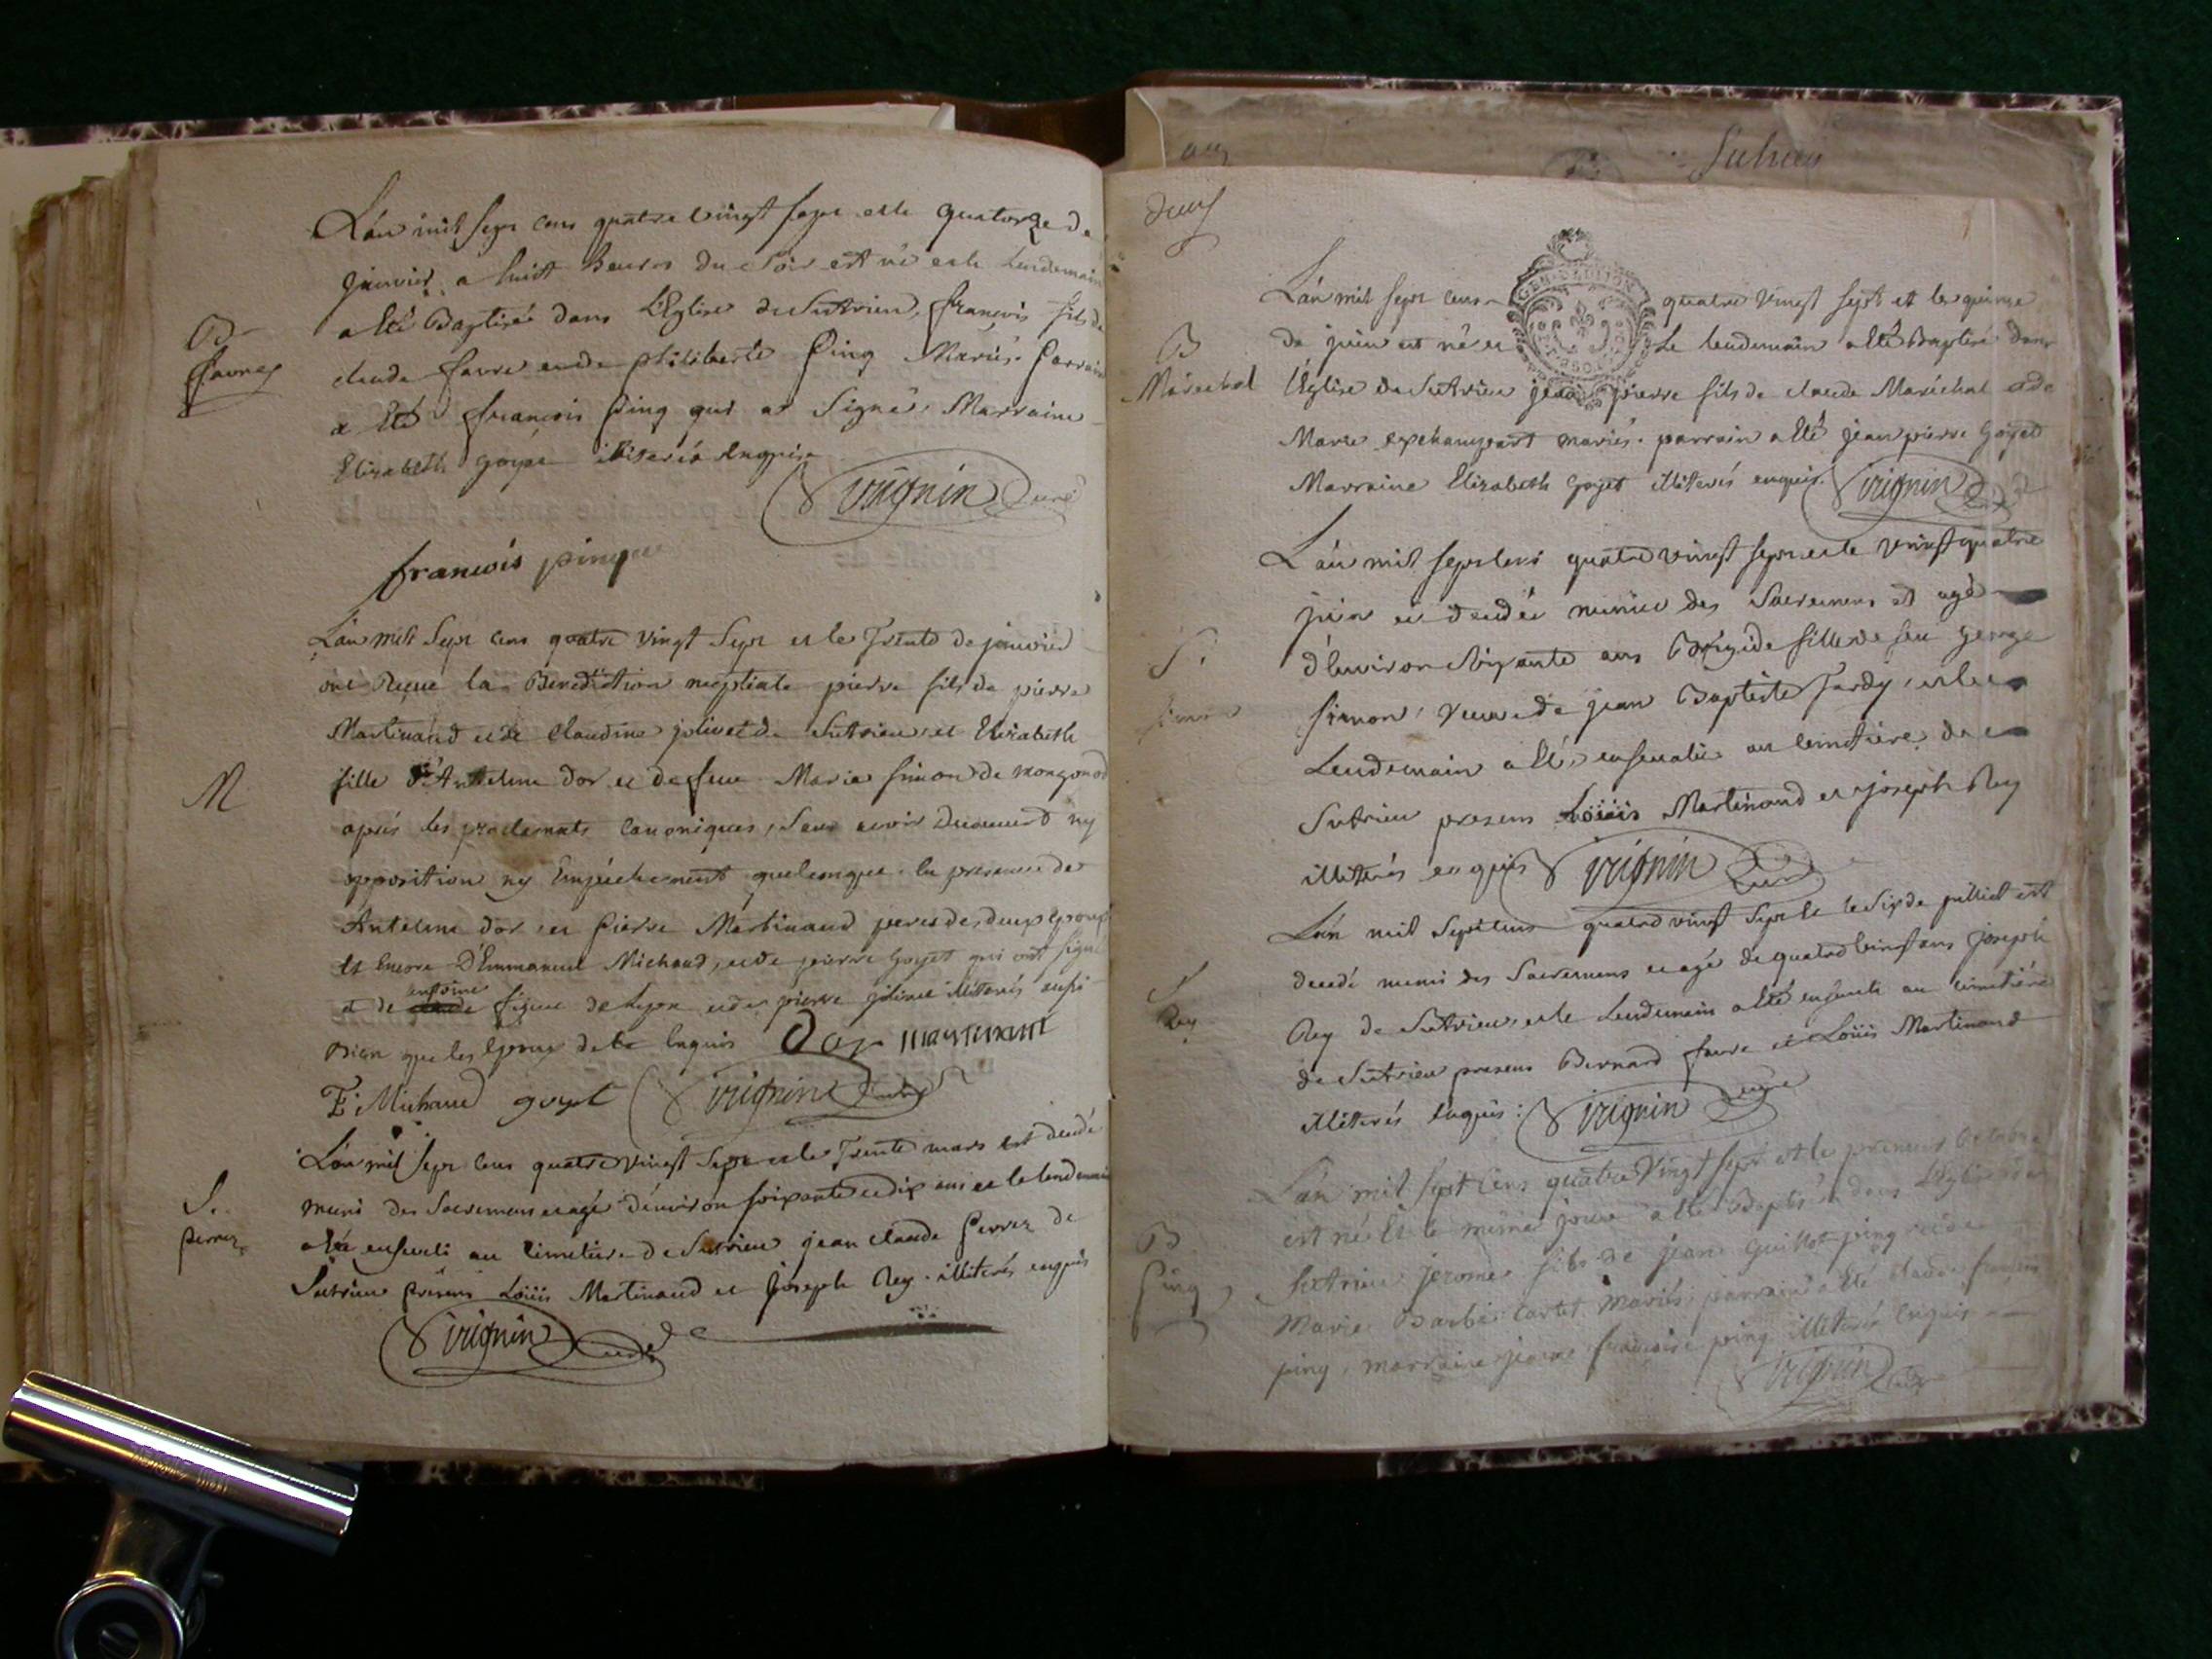 L'an mil sept cens quatre vingt sept et le quatorze de
janvier a huict heures du soir est né et le lendemain
a été Baptisé dans L'Eglise de Sutrieu, françois fils de
claude favre et de philiberte Ping Mariés. Parrain
a été françois Ping qui a Signé, Marraine
Elizabeth Goyet illiteré Enquise
Virignin Curé
B
favre
françois pingue
L'an mil Sept cens quatre vingt Sept et le Trente de janvier
ont Reçue la Benediction nuptiale pierre fils de pierre
Martinand et de Claudine jolivet de Sutrieu, et Elizabeth
fille d'Antelme Dor et de feue Marie Simon de
M
aprés les proclamats canoniques, sans avoir decouvert ny
opposition ny Empéchement quelconque. En presence de
Antelme Dor, et Pierre Martinand peres des deux epoux
et encore D'Emmanuel Michaud, et de pierre Goyet qui ont signé
et de antoine de Lyon et de pierre illiterés aussi
Bien que les Epoux de ce Enquis Dor martinant
E. Michaud goyet Virignin Curé
L'an mil sept cens quatre vingt Sept et le Trente mars est decedé
muni des Sacremens et agé d'environ soixante et dix ans et le lendemain
a été enseveli au cimetiere de Sutrieu jean claude Perrez de
Sutrieu Présens Loüis Martinand et Joseph Rey. illiterés enquis
S.
perrez
Virignin Curé
Sutrieu
deux
L'an mil sept cens quatre vingt sept et le quinze
de juin est né et Le lendemain a été Baptisé dans
L'Eglise de Sutrieu jean pierre fils de claude Maréchal et de
Marie mariés. parrain a été jean pierre Goyet
Marraine Elizabeth Goyet illiterés enquis. Virignin Curé
GEN. DE DIJON
B
Maréchal
L'an mil sept cens quatre vingt sept et le vingt quatre
juin est decedée munie des Sacremens et agée
d'environ soixante ans Brigide fille de feu George
Simon, veuve de jean Baptiste Tardy, et le
Lendemain a été ensevelie au cimetiere de
Sutrieu presens Loüis Martinand et joseph Rey
illiterés enquis Virignin Curé
S.
Simon
L'an mil Sept cens quatre vingt Sept et le Six de juilliet est
decedé muni des Sacremens et agé de quatre vingt ans joseph
Rey de Sutrieu, et le Lendemain a été enseveli au cimetière
de Sutrieu presens Bernard favre et Loüis Martinand
illiterés Enquis: Virignin Curé
S
Rey
L'an mil sept cens quatre Vingt sept et le premier octobre
est né Et le même jour a été Baptisé dans L'Eglise de
Sutrieu jerome fils de jean Guillot ping et de
Marie Barbe Cartet Mariés: parrain a été claude françois
ping, marraine jeanne françoise ping illiterés Enquis
Virignin Curé
B
Ping